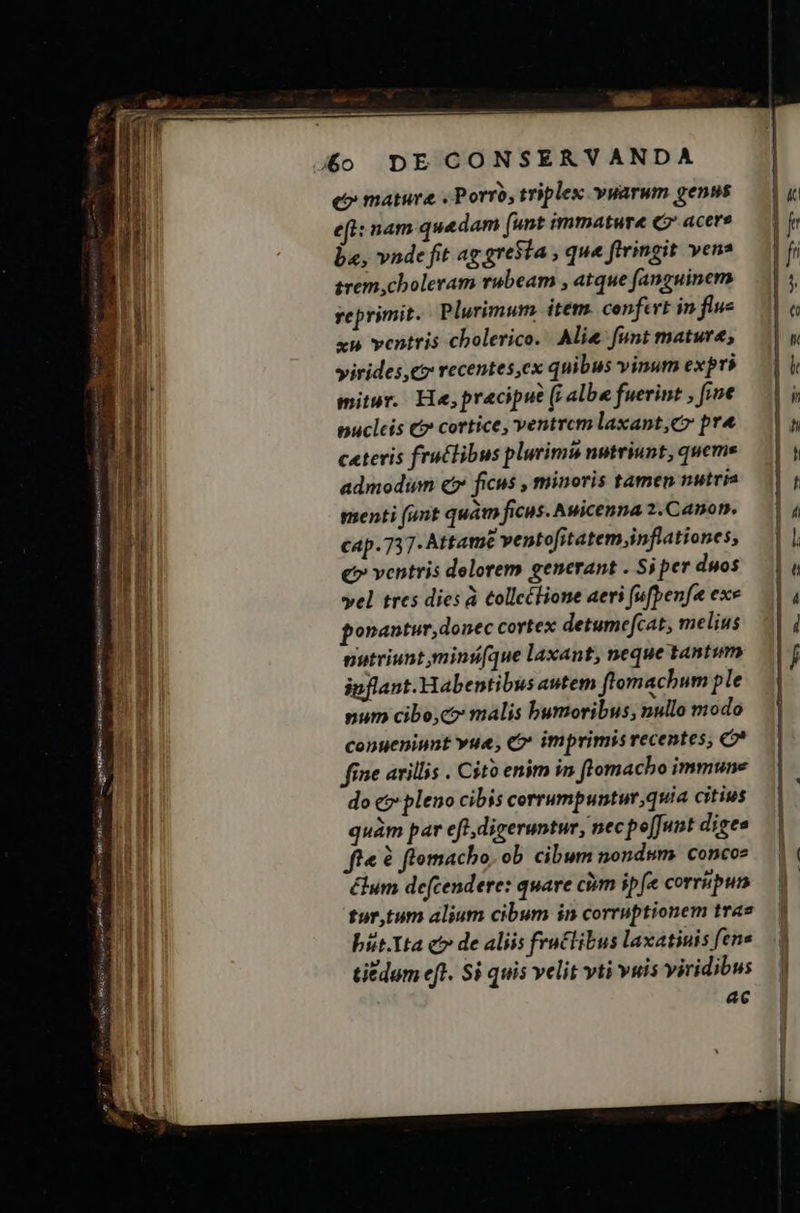 60 DE CONSERVANDA
& mature . Porrò, triplex vuarum genus
est: nam quædam sunt immaturæ & acer=
bæ, vnde fit aggresta, quæ stringit ven=
trem, choleram rubeam, atque sanguinem
reprimit. Plurimum item confert in flu=
xu ventris cholerico. Aliæ sunt maturæ,
virides, & recentes, ex quibus vinum expri
mitur. Hæ, præcipuè si albæ fuerint, sine
nucleis & cortice, ventrem laxant, & præ
cæteris fructibus plurimũ nutriunt, quem=
admodum & ficus, minoris tamen nutri=
menti sunt quàm ficus. Auicenna 2. Canon.
cap. 737. Attamẽ ventositatem, inflationes,
& ventris dolorem generant. Si per duos
vel tres dies à collectione aeri suspensæ ex=
ponantur, donec cortex detumescat, melius
nutriunt, minúsque laxant, neque tantum
inflant. Habentibus autem stomachum ple
num cibo, & malis humoribus, nullo modo
conueniunt vuæ, & imprimis recentes, &
sine arillis. Citò enim in stomacho immun=
do & pleno cibis corrumpuntur, quia citius
quàm par est, digeruntur, nec possunt dige=
stæ è stomacho ob cibum nondum conco=
ctum descendere: quare cùm ipsæ corrũpun
tur, tum alium cibum in corruptionem tra=
hũt. Ita & de aliis fructibus laxatiuis sen=
tiẽdum est. Si quis velit vti vuis viridibus
ac